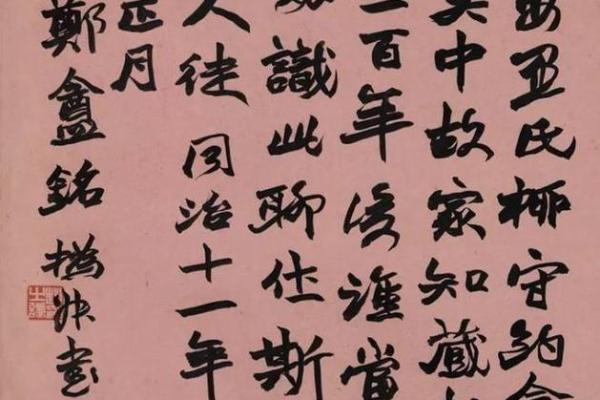 氏柳守
吳中故家知藏
二百年後誰當
識此聊仕斯
人徒同治十一年
正月
鄭盦銘撝叔書